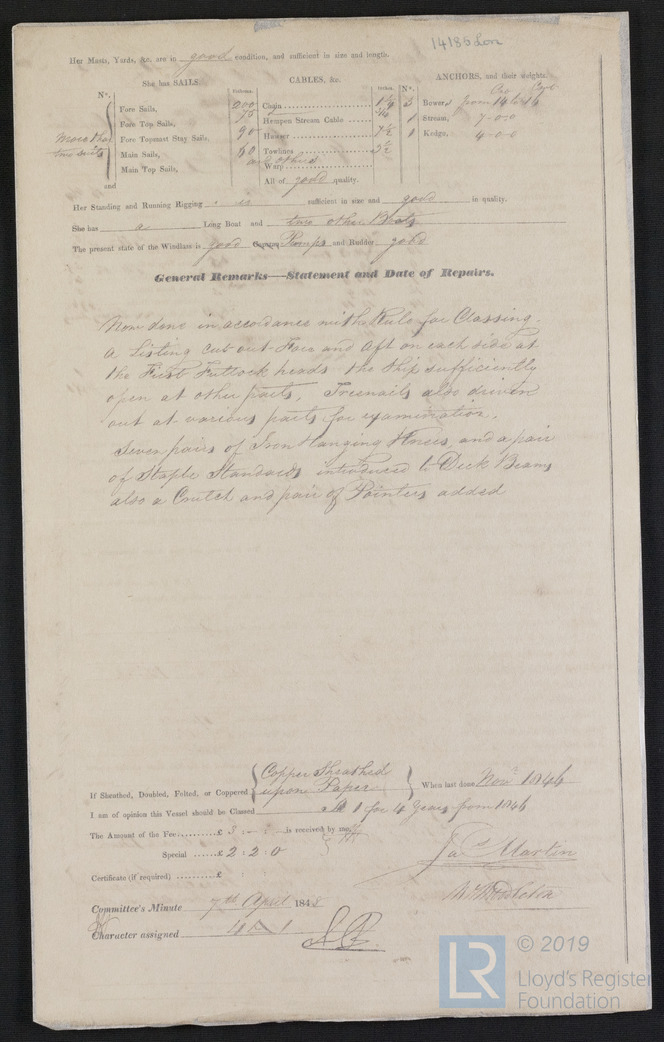 14186 Lon
Her Masts, Yards, &c. are in good condition, and sufficient in size and length.
She has SAILS. CABLES, &c. ANCHORS, and their weights.
N°. Fathoms. Inches. N°.
Fore Sails, Chain 200 3 Bowers from 14 to 16
Fore Top Sails, 75 Hempen Stream Cable 1 Stream, 7-0-0
more than Fore Topmast Stay Sails, 90 Hawser 7½ 1 Kedge, 4-0-0
two suits Main Sails, Towlines
Main Top Sails, and others Warp
and All of good quality.
Her Standing and Running Rigging is sufficient in size and good in quality.
She has a Long Boat and two other Boats
The present state of the Windlass is good Capstan Pumps and Rudder good
General Remarks—Statement and Date of Repairs.
Now done in accordance with Rule for Classing.
A Listing cut out Fore and Aft on each side at
the First Futtock heads the Ship sufficiently
open at other parts, Treenails also driven
out at various parts for examination.
Seven pairs of Iron Hanging Knees, and a pair
of Staple Standards introduced to Deck Beams
also a Crutch and pair of Pointers added
If Sheathed, Doubled, Felted, or Coppered Copper Sheathed upon Paper When last done Nov 1846
I am of opinion this Vessel should be Classed A 1 for 4 Years from 1846
The Amount of the Fee £ 3 : - : - is received by me,
Special £ 2 : 2 : 0
Jas Martin
Certificate (if required) £
Committee's Minute 7th April 184
Character assigned 4 A 1
© 2019
LR
Lloyd's Register
Foundation